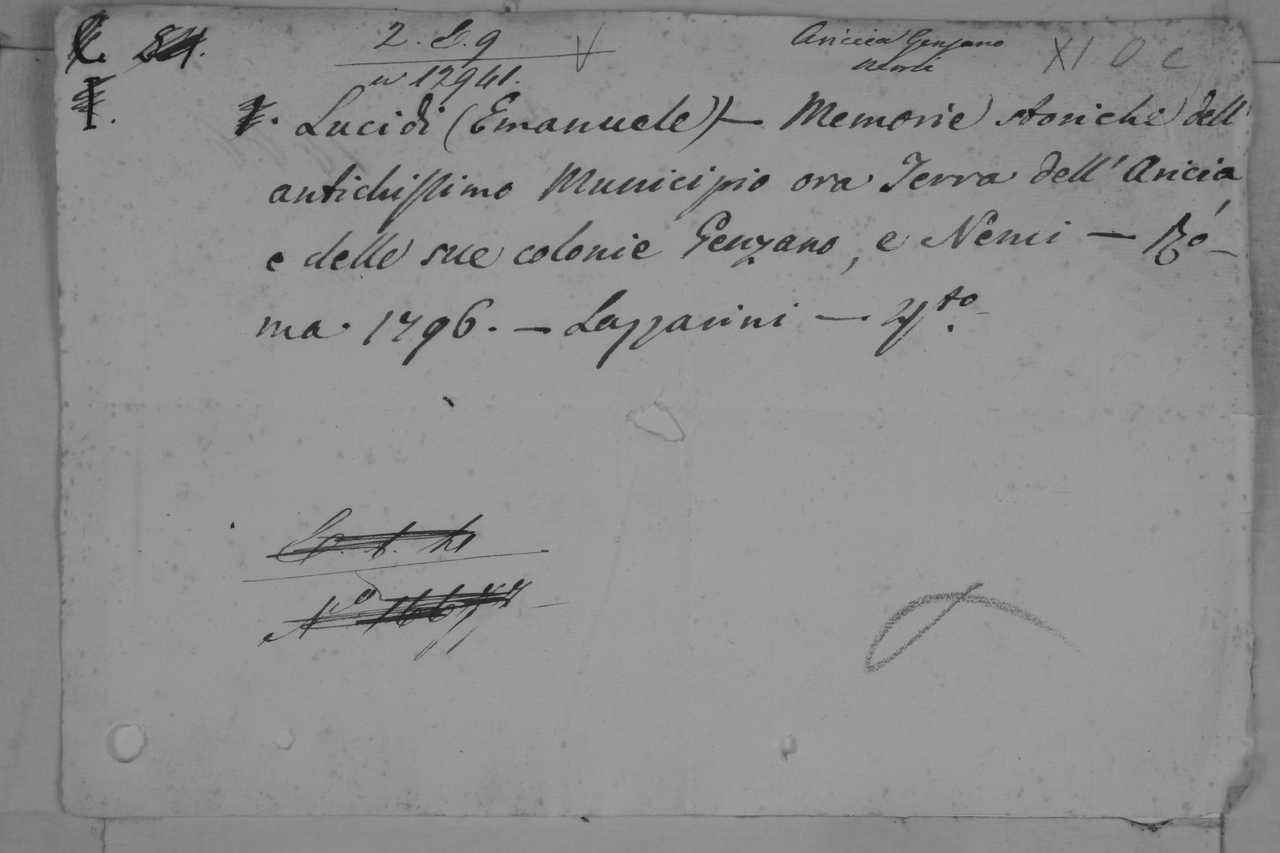 2. E. 9
n 12941.
Ariccia Genzano
Nemi
XI O c
Lucidi (Emanuele) — Memorie storiche dell'
antichissimo Municipio ora Terra dell' Aricia
e delle sue colonie Genzano, e Nemi — Ro-
ma. 1796. — Lazzarini — 4to.